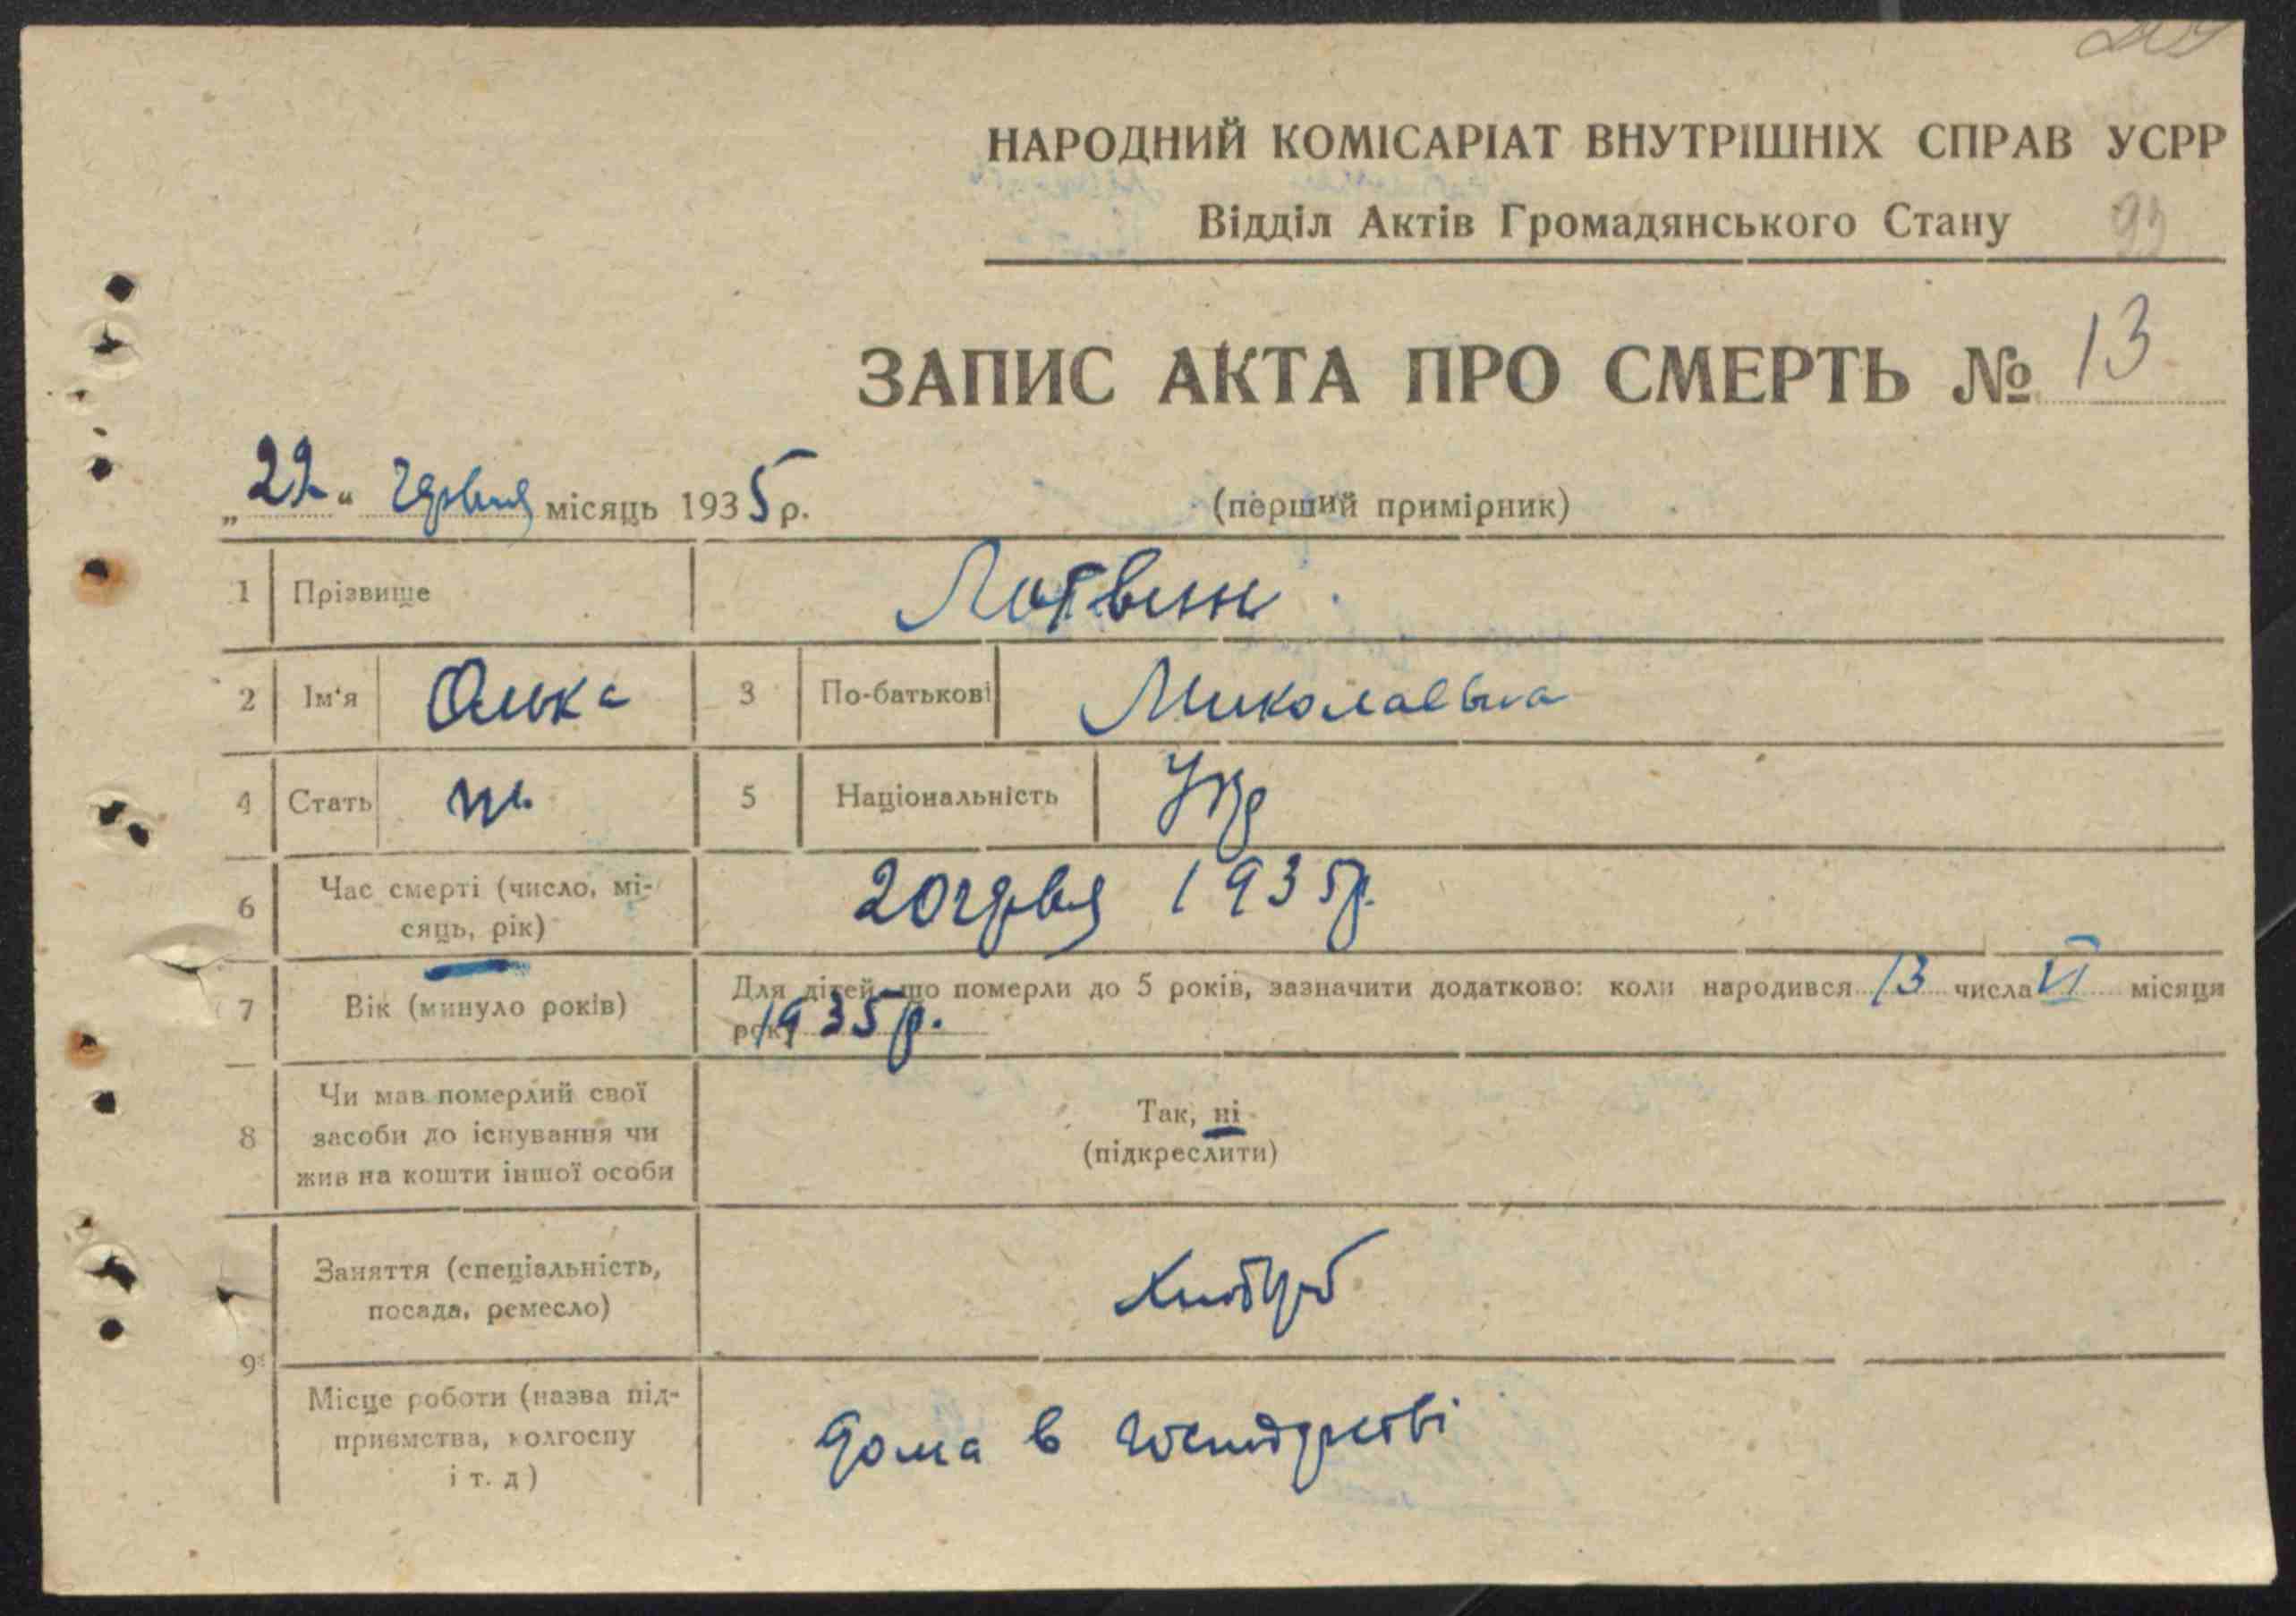 НАРОДНИЙ КОМІСАРІАТ ВНУТРІШНІХ СПРАВ УСРР
Відділ Актів Громадянського Стану 93
ЗАПИС АКТА ПРО СМЕРТЬ № 13
„22“ червня місяць 1935 р.
(перший примірник)
1 Прізвище Лотвин
2 Ім'я Олька 3 По-батькові Миколаевна
4 Стать ж. 5 Національність Укр
6 Час смерті (число, мі-
сяць, рік) 20 червня 1935 р.
7 Вік (минуло років) Для дітей, що померли до 5 років, зазначити додатково: коли народився 13 числа VI місяця
року 1935 р.
8 Чи мав померлий свої
засоби до існування чи
жив на кошти іншої особи
Так, ні
(підкреслити)
9 Заняття (спеціальність,
посада, ремесло) Хлібороб
Місце роботи (назва під-
приємства, колгоспу
і т. д) дома в господрстві